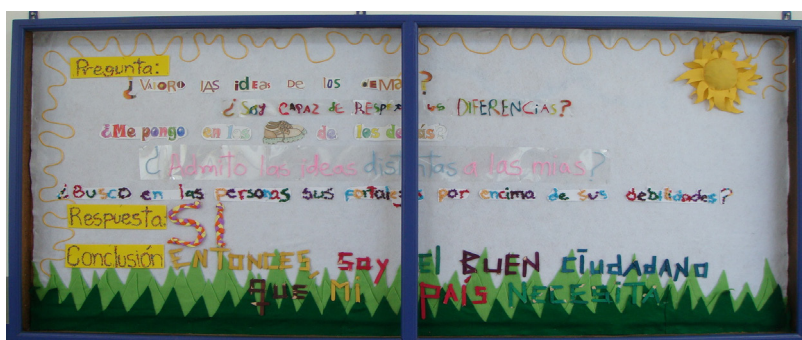 Pregunta:
¿VAlORO lAS ideas DE los DEMÁS?
¿Soy CAPAZ de RESPETAR las DIFERENCiAS?
¿Me pongo en los de los demás?
¿Admito las ideas distintas a las mias?
¿Busco en las personas sus fortalezas por encima de sus debilidades?
Respuesta: SI
Conclusión ENTONCES, SOY El BUEN CiUdAdANO
QUE MI PAÍS NECESITA